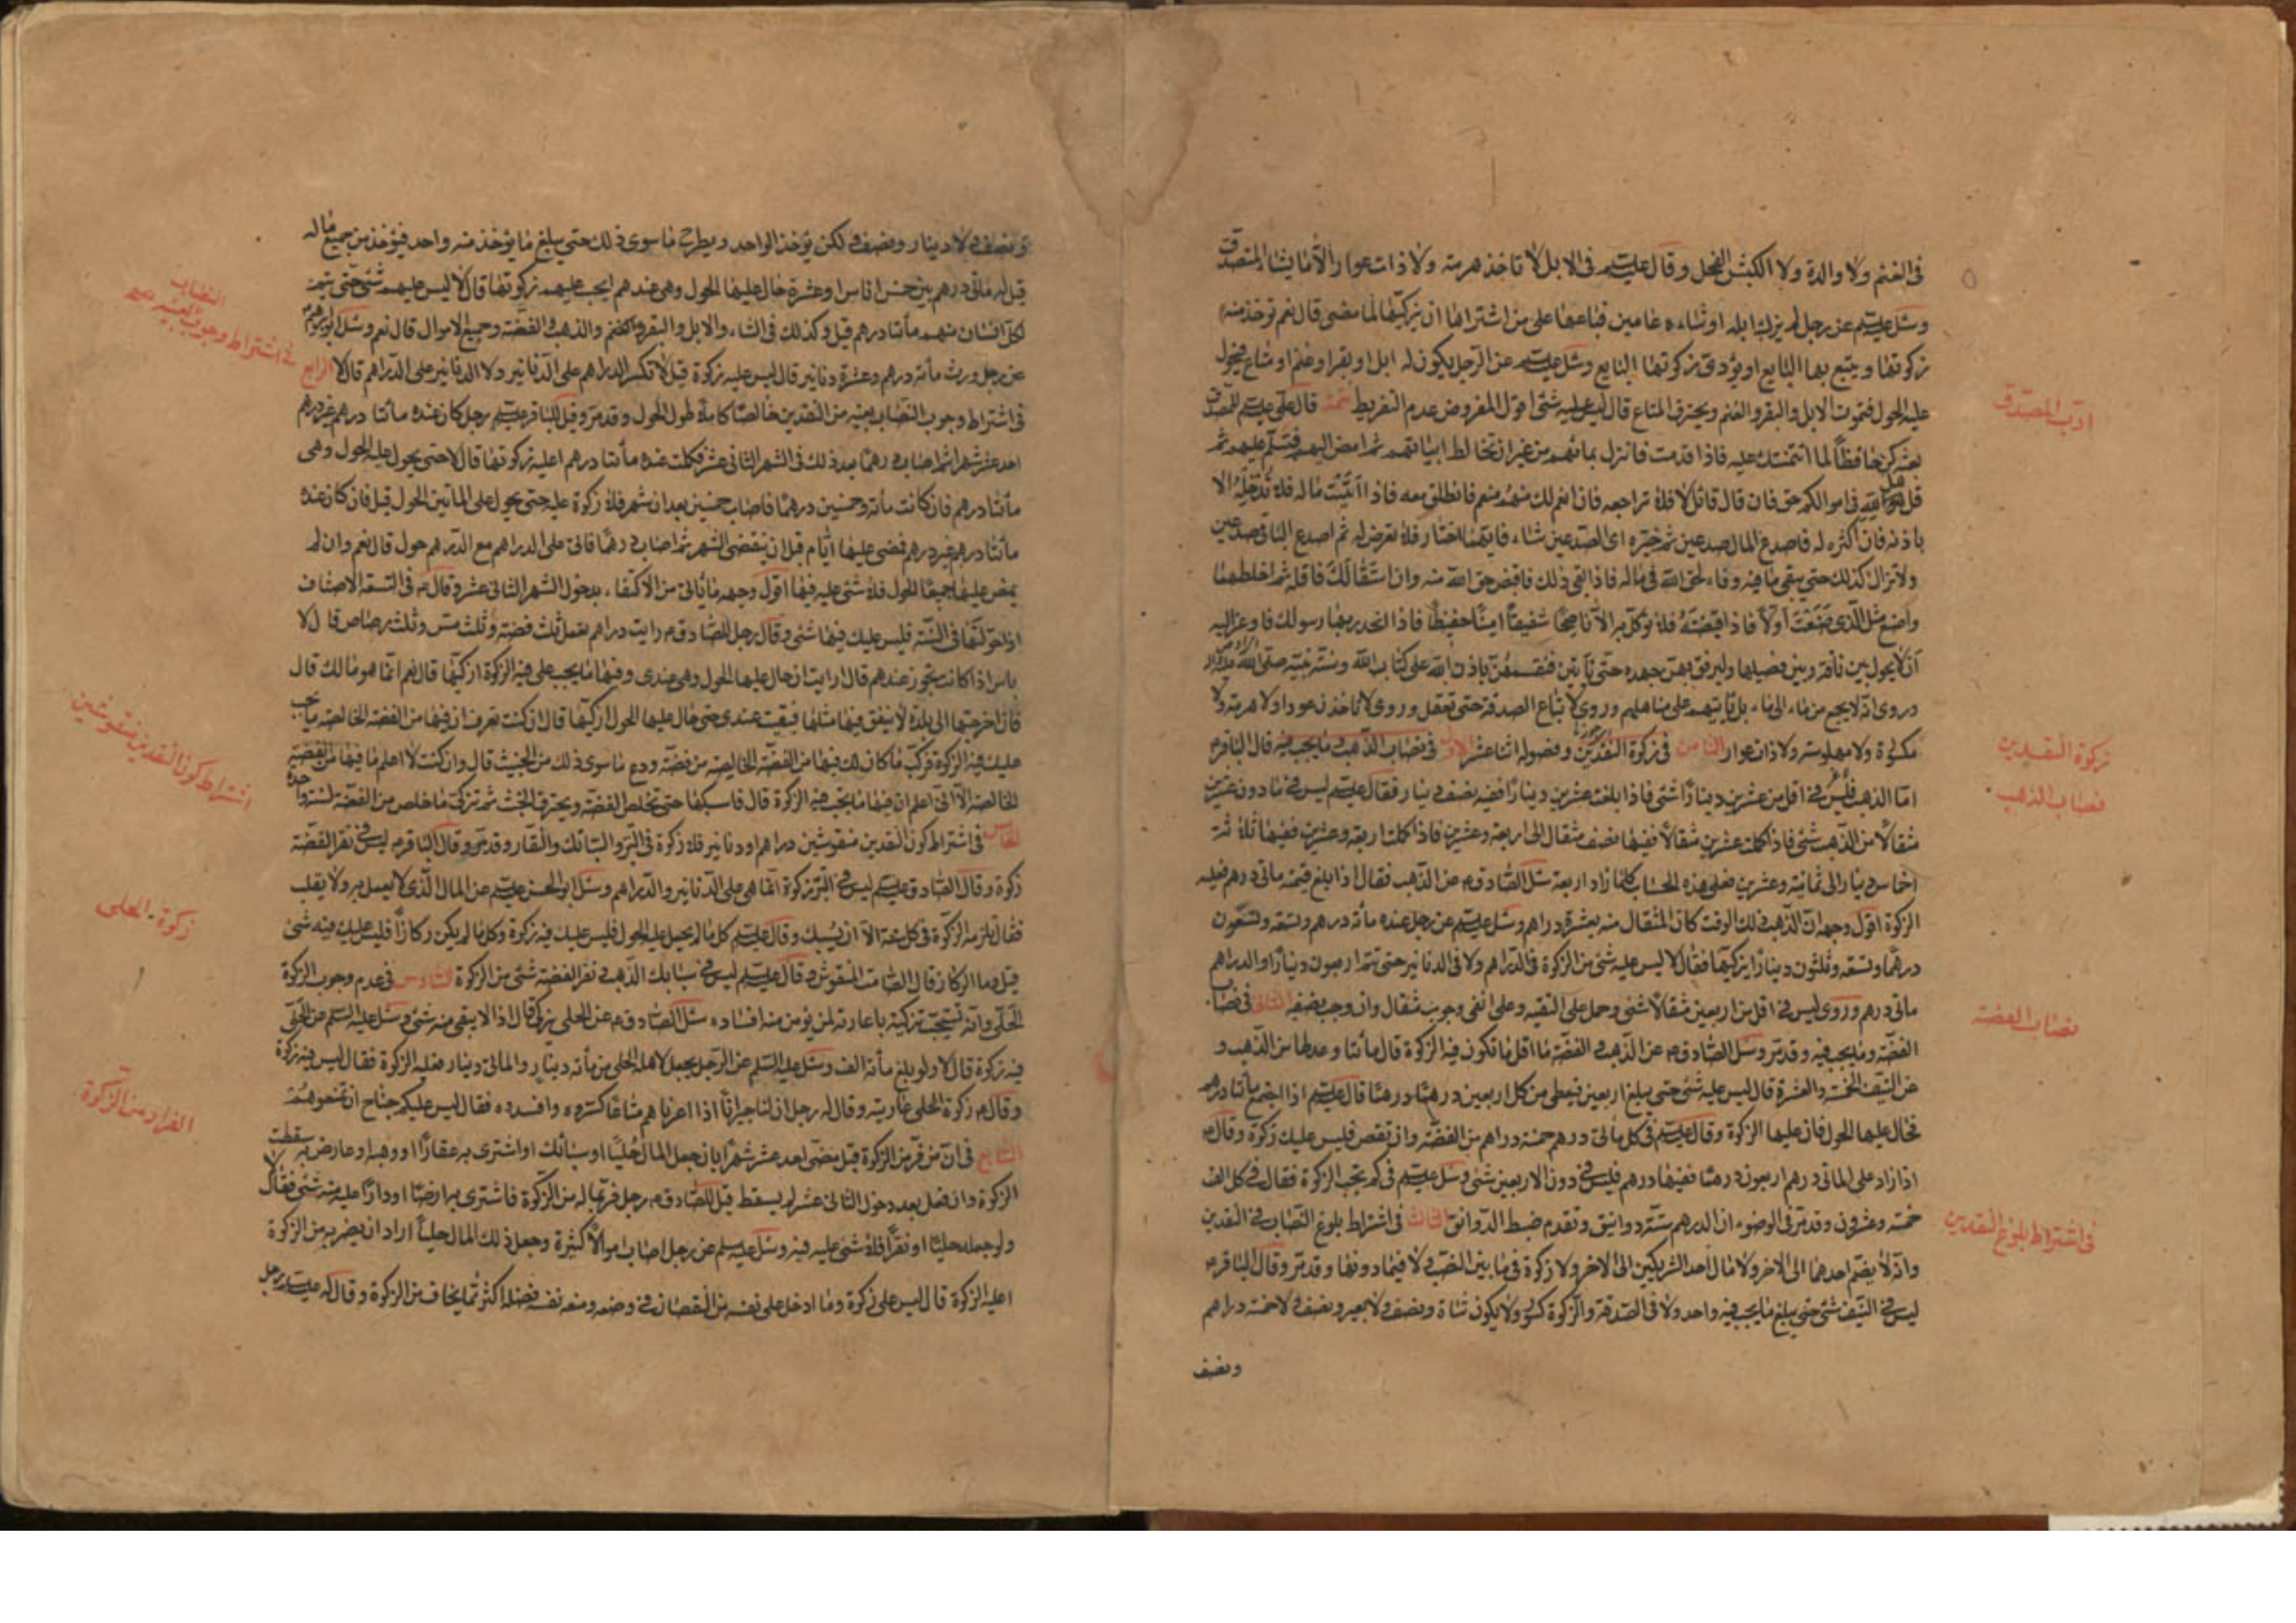 في الغنم ولا والدة ولا الكبش الفحل وقال عليه السلم في الابل لا تاخذ هرمة ولا ذات عوار الا ما يشاء المتصدق
وسئل عليه السلم عن رجل لم يزك ابله او شاءه عامين فباعها على من اشتراها ان يزكيها لما مضى قال نعم توخذ منه
زكوتها ويتبع بها البايع او يؤدى زكوتها البايع وسئل عليه السلم عن الرجل يكون له ابل او بقر او غنم او متاع فيحول
عليه الحول فتموت الابل والبقر والغنم ويحترق المتاع قال ليس عليه شئ اقول المفروض عدم التفريط تتمة قال علي عليه السلم للمصدق
ادب المصدق
بعثه كن حافظاً لما ائتمنتك عليه فاذا قدمت فانزل بمائهم من غير ان تخالط ابياتهم ثم امض اليهم فتسلم عليهم ثم
قل هل لله في اموالكم حق فان قال قائل لا فلا تراجعه فان انعم لك منهم منعم فانطلق معه فاذا اتيت ماله فلا تدخله الا
باذنه فان اكثره له فاصدع المال صدعين ثم خيره اى الصدعين شاء فايهما اختار فلا تعرض له ثم اصدع الباقى صدعين
ولا تزال كذلك حتى يبقى ما فيه وفاء لحق الله فى ماله فاذا بقى ذلك فاقبض حق الله منه وان استقالك فاقله ثم اخلطهما
واصنع مثل الذى صنعت اولاً فاذا قبضته فلا توكل به الا ناصحا شفيقاً امينا حفيظاً فاذا انحدر بها رسولك فاوعز اليه
ان لا يحول بين ناقة وبين فصيلها وليرفق بهن جهده حتى تأتين فنقسمهن باذن الله على كتاب الله وسنة نبيه صلى الله عليه واله
وروى انه لا يجمع من ماء الى ماء بل تأتيهم على مناهلهم وروى لا تباع الصدقة حتى تعقل وروى لا تاخذن عودا ولا هرمة ولا
زكوة النقدين
مكسورة ولا مهلوسة ولا ذات عوار الثامن فى زكوة النقدين وفصوله اثنا عشر الاول فى نصاب الذهب وما يجب فيه قال الباقر م
نصاب الذهب
اما الذهب فليس في اقل من عشرين ديناراً شئ فاذا بلغت عشرين ديناراً ففيه نصف دينار فقال عليه السلم ليس في ما دون عشرين
مثقالاً من الذهب شئ فاذا كملت عشرين مثقالاً ففيها نصف مثقال الى اربعة وعشرين فاذا كملت اربعة وعشرين ففيها ثلاثة
اخماس دينار الى ثمانية وعشرين فعلى هذه الحساب كلما زاد اربعة سئل الصادق م عن الذهب فقال اذا بلغ قيمته مائى درهم فعليه
الزكوة اقول وجهه ان الذهب ذلك الوقت كان المثقال منه بعشرة دراهم وسئل عليه السلم عن رجل عنده مأة درهم وتسعة وتسعون
درهما وتسعة وثلثون ديناراً ايزكيها فقال لا ليس عليه شئ من الزكوة في الدراهم ولا فى الدنانير حتى تتم اربعون ديناراً والدراهم
نصاب الفضة
مائتى درهم وروى ليس في اقل من اربعين مثقالاً شئ وحمل على التقيه وعلى انفى وجوب مثقال وان وجب نصفه الثانى فى نصاب
الفضة وما يجب فيه وقد مر وسئل الصادق م عن الذهب والفضة ما اقل ما تكون فيه الزكوة قال مأتا وعدلها من الذهب و
عن النيف الخمسة والعشرة قال ليس عليه شئ حتى يبلغ اربعين فيعطى من كل اربعين درهما درهما قال عليه السلم اذا اجتمع مأتا درهم
فحال عليها الحول فان عليها الزكوة وقال عليه السلم فى كل مأتى درهم خمسة دراهم من الفضة وان نقص فليس عليك زكوة وقال م
اذا زاد على المائتى درهم اربعون درهما ففيها درهم فليس في دون الاربعين شئ وسئل عليه السلم فى كم تجب الزكوة فقال في كل الف
في اشتراط بلوغ النقدين
خمسة وعشرون وقد مر فى الوضوء ان الدرهم ستة دوانيق وتقدم ضبط الدوانق الثالث فى اشتراط بلوغ النصاب في النقدين
وانه لا يضم احدهما الى الاخر ولا مال احد الشريكين الى الاخر ولا زكوة فى ما بين النصب ولا فيما دونها وقد مر وقال الباقر م
ليس في النيف شئ حتى يبلغ ما يجب فيه واحد ولا فى الصدقة والزكوة كسور ولا يكون شاة ونصف ولا بعير ونصف ولا خمسة دراهم
ونصف
ونصف ولا دينار ونصف ولكن يؤخذ الواحد ويطرح ما سوى ذلك حتى يبلغ ما يؤخذ منه واحد فيؤخذ من جميع ماله
قيل له مائتى درهم بين خمس اناس او عشرة حال عليها الحول وهى عندهم ايجب عليهم زكوتها قال لا ليس عليهم شئ حتى يتم
لكل انسان منهم مأتا درهم قيل وكذلك فى الشاء والابل والبقر والغنم والذهب والفضة وجميع الاموال قال نعم وسئل
في اشتراط وجوب النصاب بعينه
عن رجل ورث مأة درهم وعشرة دنانير قال ليس عليه زكوة قيل لا تكسر الدراهم على الدنانير ولا الدنانير على الدراهم قال لا الرابع
فى اشتراط وجوب النصاب بعينه من النقدين خالصًا كاملاً طول الحول وقد مر وقيل للباقر عليه السلم رجل كان عنده مأتا درهم غير درهم
احد عشر شهرا ثم اصاب درهما بعد ذلك فى الشهر الثانى عشر فكملت عنده مأتا درهم اعليه زكوتها قال لا حتى يحول عليه الحول وهى
مأتا درهم فان كانت مأة وخمسين درهما فاصاب خمسين بعد ان شهر فلا زكوة عليه حتى يحول على المأتين الحول قيل فان كان عنده
مأتا درهم غير درهم فمضى عليها ايام قبل ان ينقضى الشهر ثم اصاب درهما فاتى على الدراهم مع الدرهم حول قال نعم وان لم
يمض عليها جميعًا الحول فلا شئ عليه فيها اقول وجهه ما يأتى من الاكتفاء بدخول الشهر الثانى عشر وقال م فى التسعة الاصناف
اذا حولتها فى السنة فليس عليك فيها شئ وقال رجل للصادق م رايت دراهم تعمل ثلث فضة وثلث مس وثلث رصاص قال لا
باس اذا كانت تجوز عندهم قال ارايت ان حال عليها الحول وهى عندى وفيها ما يجب على فيه الزكوة ازكيها قال نعم انما هو مالك قال
فان اخرجتها الى بلدة لا ينفق فيها مثلها فبقيت عندى حتى حال عليها الحول ازكيها قال ان كنت تعرف ان فيها من الفضة الخالصة ما يجب
اشتراط كون النقدين منقوشين
عليك فيه الزكوة فزك ما كان لك فيها من الفضة الخالصة من فضة ودع ما سوى ذلك من الخبيث قال وان كنت لا اعلم ما فيها من الفضة
الخالصة الا انى اعلم ان فيها ما يجب فيه الزكوة قال فاسبكها حتى تخلص الفضة ويحترق الخبث ثم تزكى ما خلص من الفضة لسنة واحدة
الخامس فى اشتراط كون النقدين منقوشين دراهم ودنانير فلا زكوة فى التبر والسبائك والنقار وقد مر وقال الباقر م ليس في نقر الفضة
زكوة وقال الصادق عليه السلم ليس في التبر زكوة انما هى على الدنانير والدراهم وسئل ابو الحسن عليه السلم عن المال الذى لا يعمل به ولا يقلب
زكوة الحلى
فقال تلزمه الزكوة فى كل سنة الا ان يسبك وقال عليه السلم كل ما لم يحل عليه الحول فليس عليك فيه زكوة وكل ما لم يكن ركازاً فليس عليك فيه شئ
قيل وما الركاز قال الصامت المنقوش وقال عليه السلم ليس في سبائك الذهب ونقر الفضة شئ من الزكوة السادس فى عدم وجوب الزكوة
الحلى وانه تستحب تزكيته باعارته لمن يؤمن منه افساده سئل الصادق م عن الحلى يزكى قال اذا لا يبقى منه شئ وسئل عليه السلم عن الحلى
فيه زكوة قال لا ولو بلغ مأة الف وسئل عليه السلم عن الرجل يجعل لاهله الحلى من مأة دينار والمائتى دينار فعليه الزكوة فقال ليس فيه زكوة
الفرار من الزكوة
وقال م زكوة الحلى عاريته وقال له رجل ان لنا جيرانًا اذا اعرناهم متاعًا كسروه وافسدوه فقال ليس عليكم جناح ان تمنعوهم
السابع فى ان من فر من الزكوة قبل مضى احد عشر شهرا بان جعل المال حليًا او سبائك او اشترى به عقاراً او وهبه او عارض به سقطت
الزكوة وان فعل بعد دخول الثانى عشر لم يسقط قيل للصادق م رجل فر بماله من الزكوة فاشترى به ارضًا او داراً اعليه فيه شئ فقال لا
ولو جعله حليًا او نقراً فلا شئ عليه فيه وسئل عليه السلم عن رجل اصاب اموالاً كثيرة وجعل ذلك المال حلياً اراد ان يفر به من الزكوة
اعليه الزكوة قال ليس على زكوة وما ادخل على نفسه من النقصان فى وضعه ومنعه نفسه فضله اكثر مما يخاف من الزكوة وقال له عليه السلم رجل